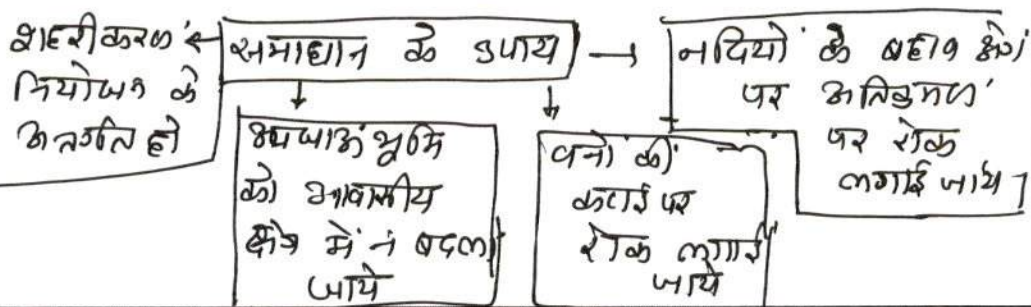 शहरीकरण
नियोजन के
अन्तर्गत हो
समाधान के उपाय
नदियों के बहाव क्षेत्रों
पर अतिक्रमण
पर रोक
लगाई जाये
भूमि
को आवासीय
क्षेत्र में न बदला
जाये
वनों की
कटाई पर
रोक लगाई
जाये